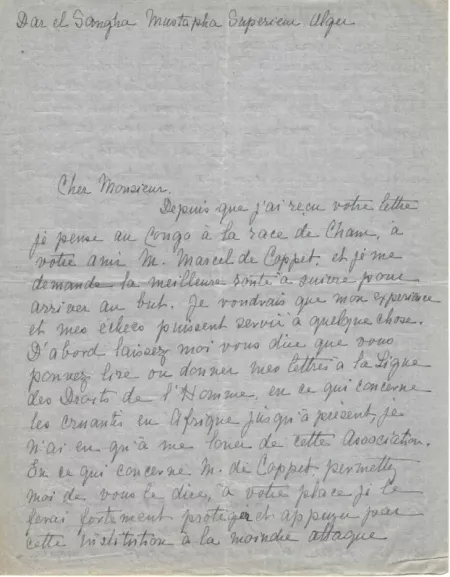 Dar el Sangha Mustapha Superieur Alger
Cher Monsieur.
Depuis que j'ai reçu votre lettre
je pense au Congo à la race de Cham, à
votre ami M. Marcel de Coppet, et je me
demande la meilleure route à suivre pour
arriver au but. Je voudrais que mon experience
et mes échecs puissent servir à quelque chose.
D'abord laissez moi vous dire que vous
pouvez lire ou donner mes lettres à la Ligue
des Droits de l'Homme, en ce qui concerne
les cruautés en Afrique jusqu'à présent, je
n'ai eu qu'à me louer de cette Association.
En ce qui concerne M. de Coppet permettez
moi de vous le dire, à votre place je le
ferai fortement protéger et appuyer par
cette institution à la moindre attaque